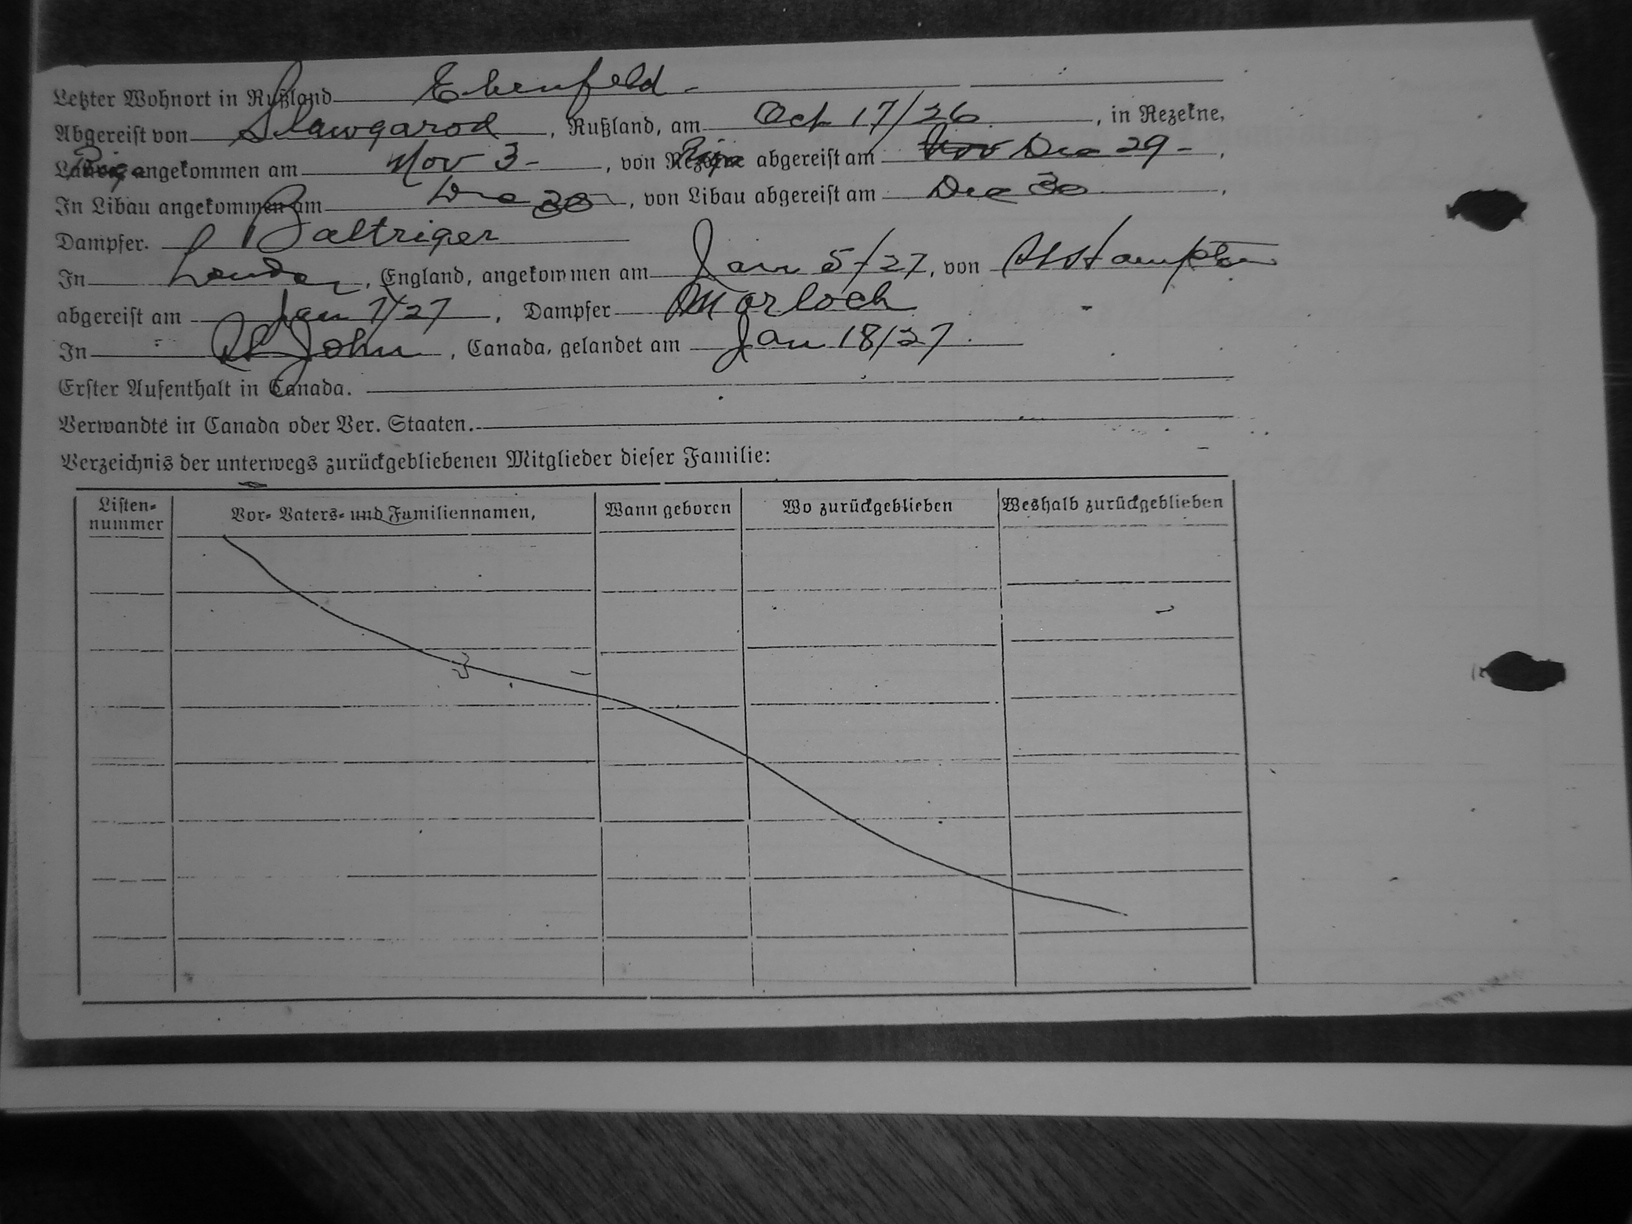 Letzter Wohnort in Rußland Ebenfeld
Abgereist von Slawgarod, Rußland, am Oct 17/26, in Rezekne,
Riga angekommen am Nov 3 -, von Riga abgereist am Nov Dec 29 -,
In Libau angekommen am Dec 30, von Libau abgereist am Dec 30,
Dampfer. Baltriger
In London, England, angekommen am Jan 5/27, von SHampton
abgereist am Jan 7/27, Dampfer Marloch
In St John, Canada, gelandet am Jan 18/27.
Erster Aufenthalt in Canada.
Verwandte in Canada oder Ver. Staaten.
Verzeichnis der unterwegs zurückgebliebenen Mitglieder dieser Familie:
Listen-nummer Vor- Vaters- und Familiennamen, Wann geboren Wo zurückgeblieben Weshalb zurückgeblieben